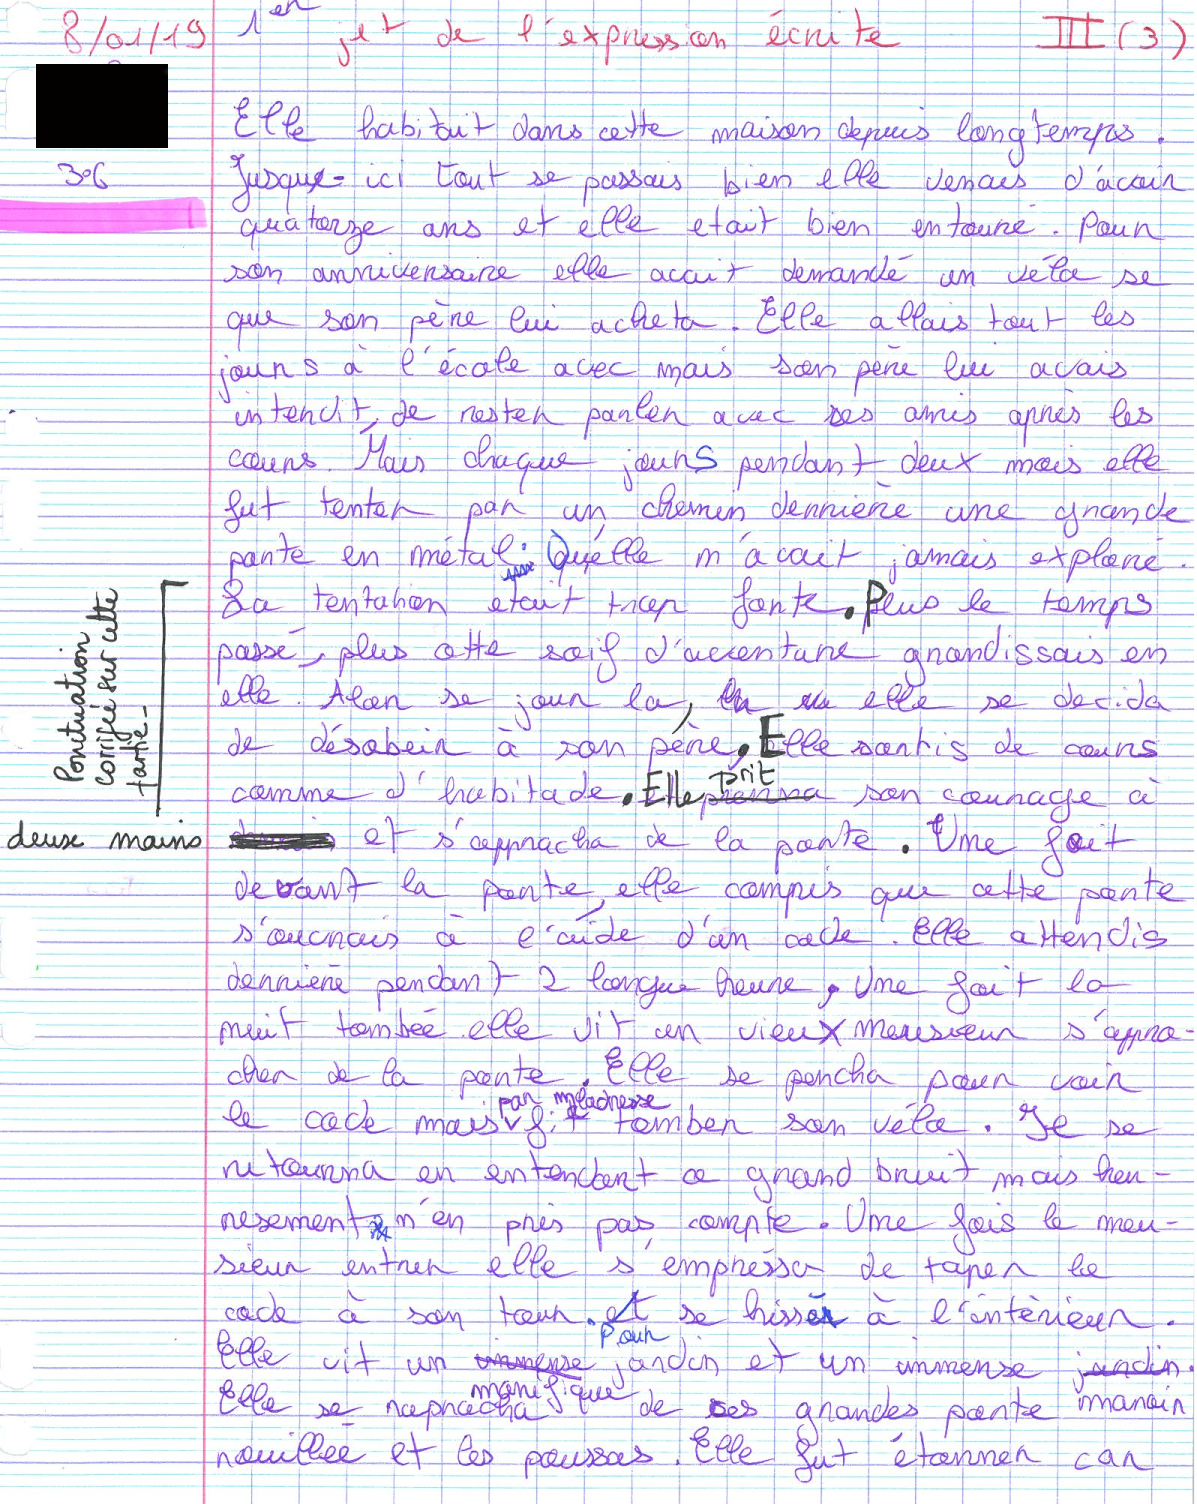 8/01/19 1er jet de l'expression écrite III (3)
Elle habitait dans cette maison depuis longtemps.
306 Jusque-ici tout se passais bien elle venais d'avoir
quatorze ans et elle etait bien entouré. Pour
son anniversaire elle avait demandé un vélo se
que son père lui acheta. Elle allais tout les
jours à l'école avec mais son père lui avais
interdit de rester parler avec ses amis après les
cours. Mais chaque jours pendant deux mois elle
fut tenter par un chemin derrière une grande
porte en métal. Qu'elle n'avait jamais exploré.
La tentation était trop forte. Plus le temps
passé, plus cette soif d'aventure grandissais en
elle. Alor se jour la, elle se decida
de désobeir à son père. Elle sortis de cours
comme d'habitude. Elle prit son courage à
deux mains et s'approcha de la porte. Une foit
devant la porte, elle compris que cette porte
s'ouvrais à l'aide d'un code. Elle attendis
derrière pendant 2 longue heure, Une foit la
nuit tombée elle vit un vieux monsieur s'appro-
cher de la porte. Elle se pencha pour voir
le code mais par maladresse fit tomber son vélo. Il se
retourna en entendant ce grand bruit mais heu-
resement n'en pris pas compte. Une fois le mon-
sieur entrer elle s'empressa de taper le
code à son tour. et se hisser à l'intérieur.
Elle vit un jardin et un immense manoir
Elle se raprocha de ses grandes porte
rouillée et les poussas. Elle fut étonner car
Ponctuation
corrigée sur cette
partie-